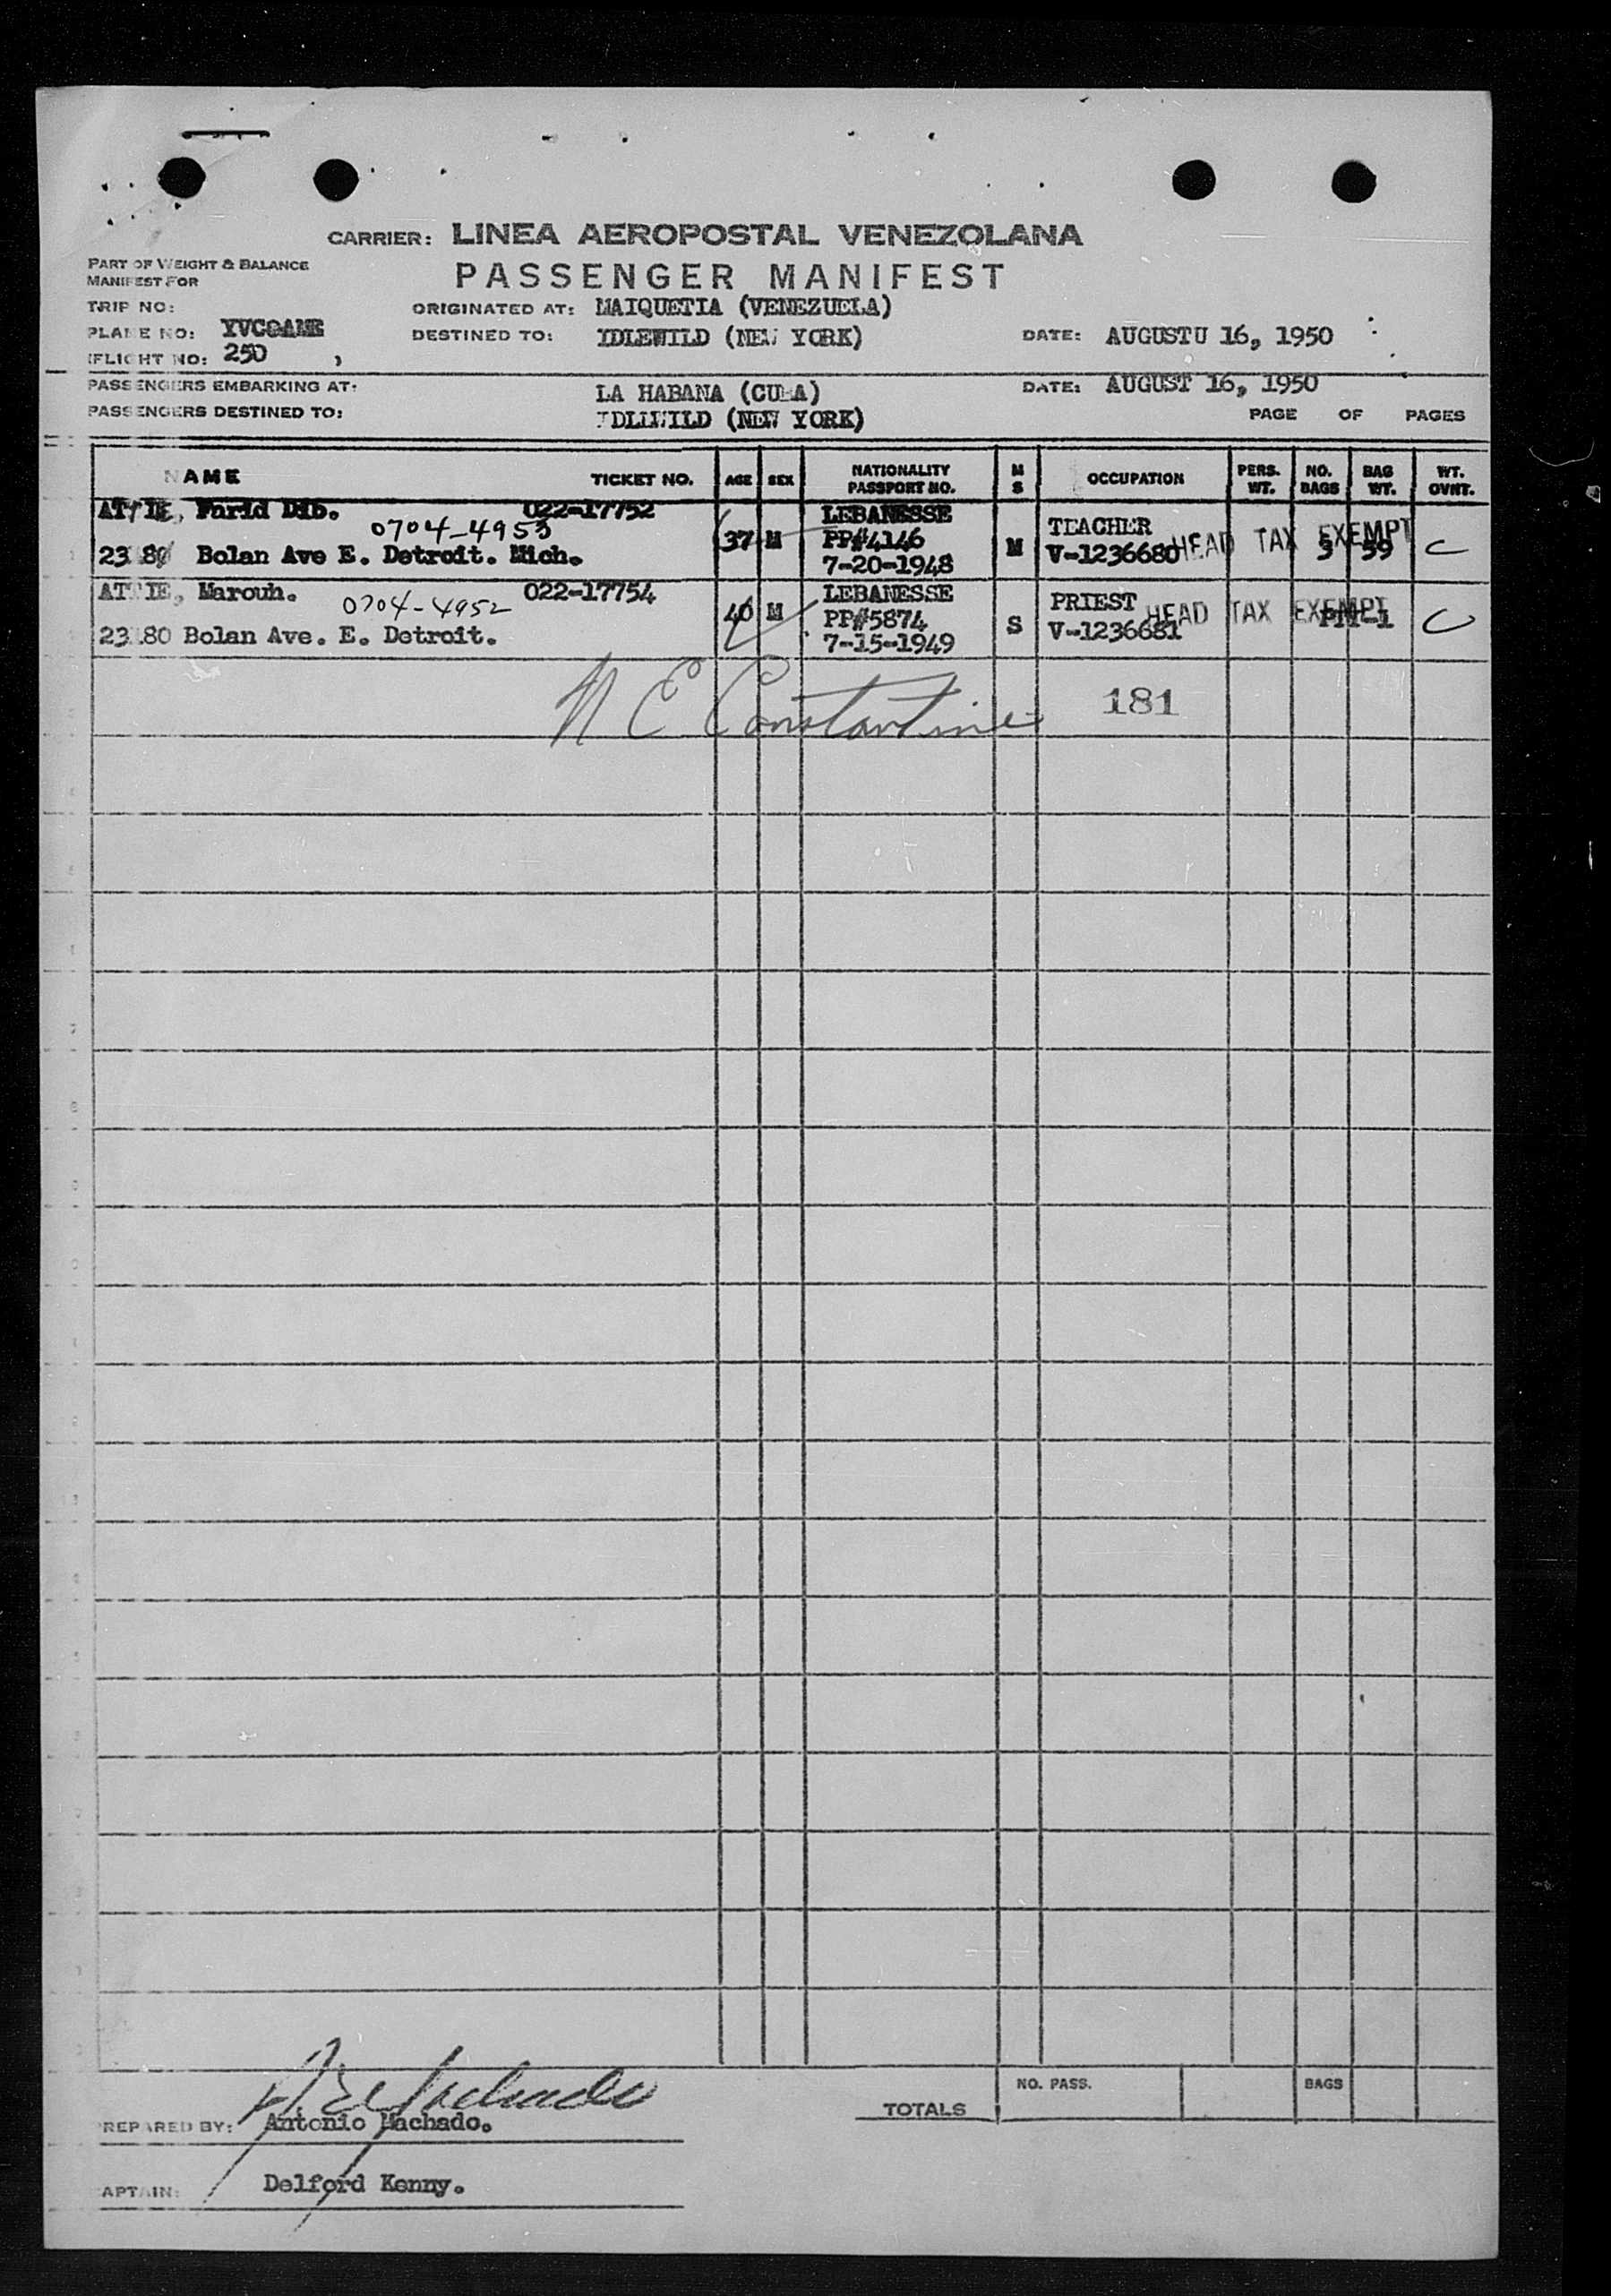 CARRIER: LINEA AEROPOSTAL VENEZOLANA
PART OF WEIGHT & BALANCE
MANIFEST FOR
PASSENGER MANIFEST
TRIP NO:
ORIGINATED AT: MAIQUETIA (VENEZUELA)
PLANE NO:
DESTINED TO: IDLEWILD (NEW YORK)
DATE: AUGUSTU 16, 1950
FLIGHT NO: 250
PASSENGERS EMBARKING AT: LA HABANA (CUBA)
DATE: AUGUST 16, 1950
PASSENGERS DESTINED TO: IDLEWILD (NEW YORK)
PAGE OF PAGES
NAME TICKET NO. AGE SEX NATIONALITY PASSPORT NO. M S OCCUPATION PERS. WT. NO. BAGS BAG WT. WT. OVNT.
ATTIE, Farid Dib. 022-17752 LEBANESSE
0704-4953 37 M PP#4146 M TEACHER HEAD TAX EXEMPT
Bolan Ave E. Detroit. Mich. 7-20-1948 V-1236680 3 59 C
ATTIE, Marouh. 022-17754 LEBANESSE
0704-4952 40 M PP#5874 S PRIEST HEAD TAX EXEMPT C
Bolan Ave. E. Detroit. 7-15-1949 V-1236681
N E Constantine 181
NO. PASS. BAGS
TOTALS
PREPARED BY: Antonio Machado.
CAPTAIN: Delford Kenny.